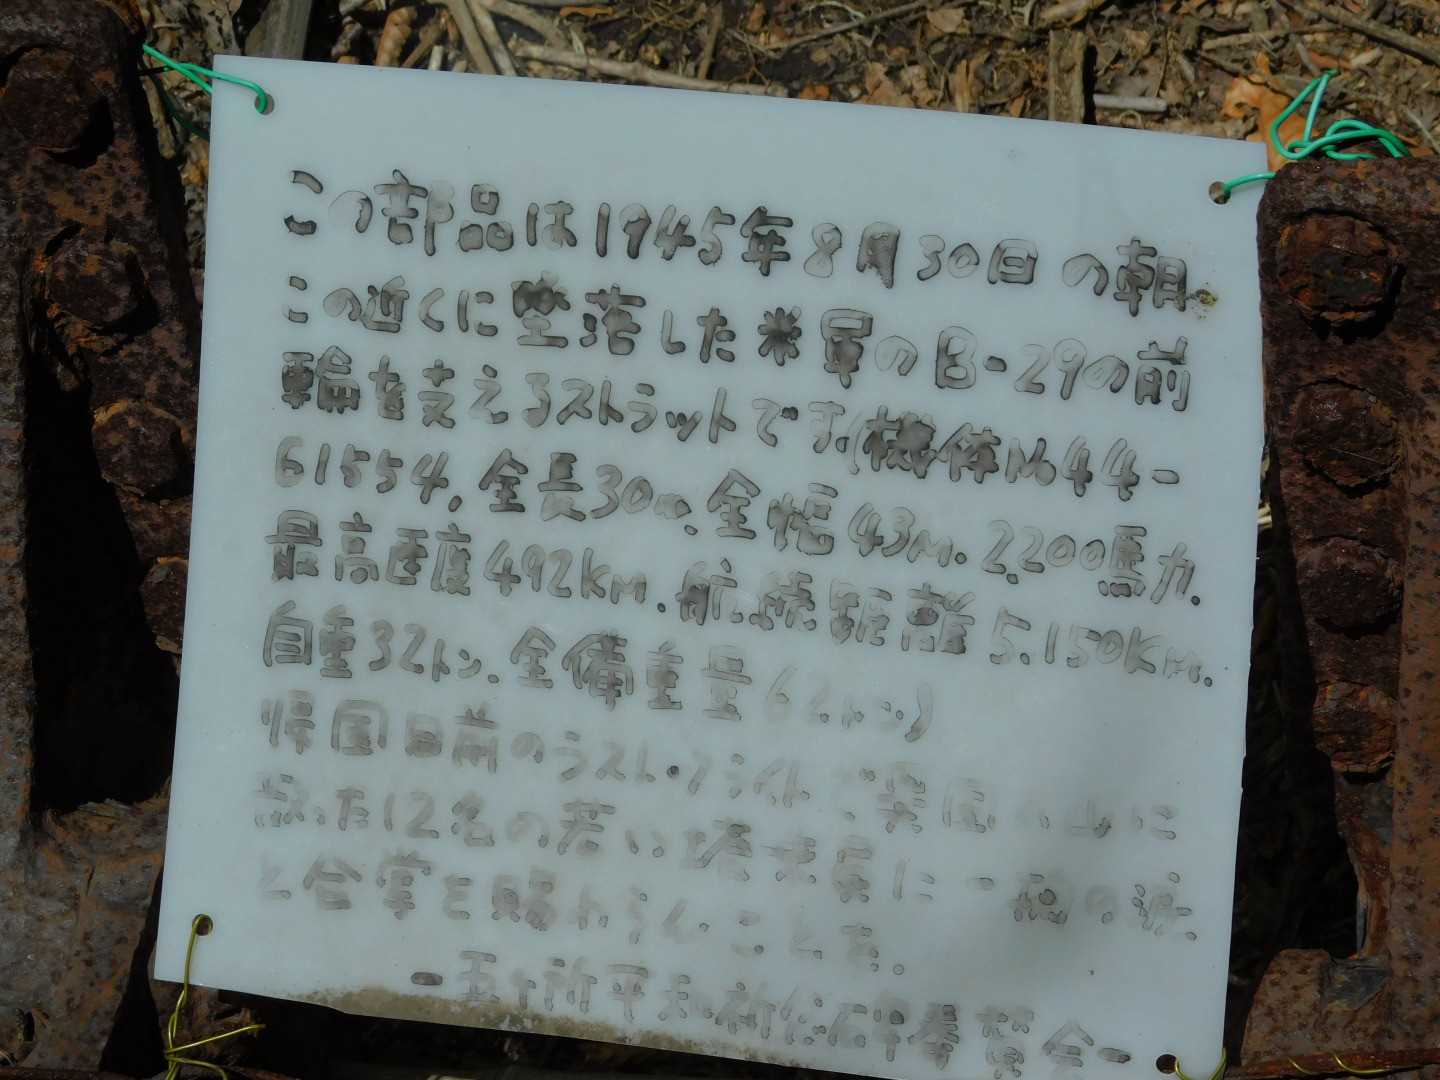 この部品は1945年8月30日の朝、
この近くに墜落した米軍のB-29の前
輪を支えるストラットです。(機体No44-
61554,全長30m.全幅43m.2.200馬力.
最高速度492km.航続距離5.150Km.
自重32トン.全備重量62トン)
帰国日前のラスト・フライトで異国の山に
散った12名の若い搭乗員に一掬の涙
と合掌を賜わらんことを。
-五ヶ所平和祈念碑奉賛会-